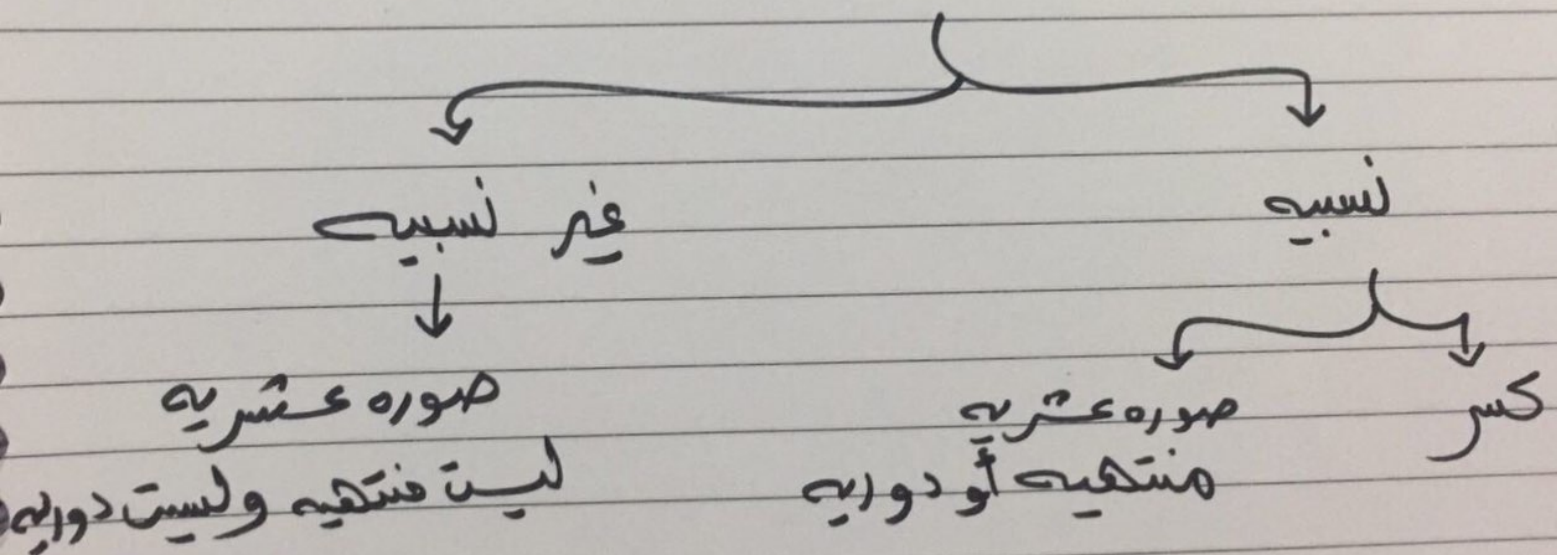 نسبيه
غير نسبيه
كسر
صوره عشريه
منتهيه أو دوريه
صوره عشريه
ليست منتهيه وليست دوريه